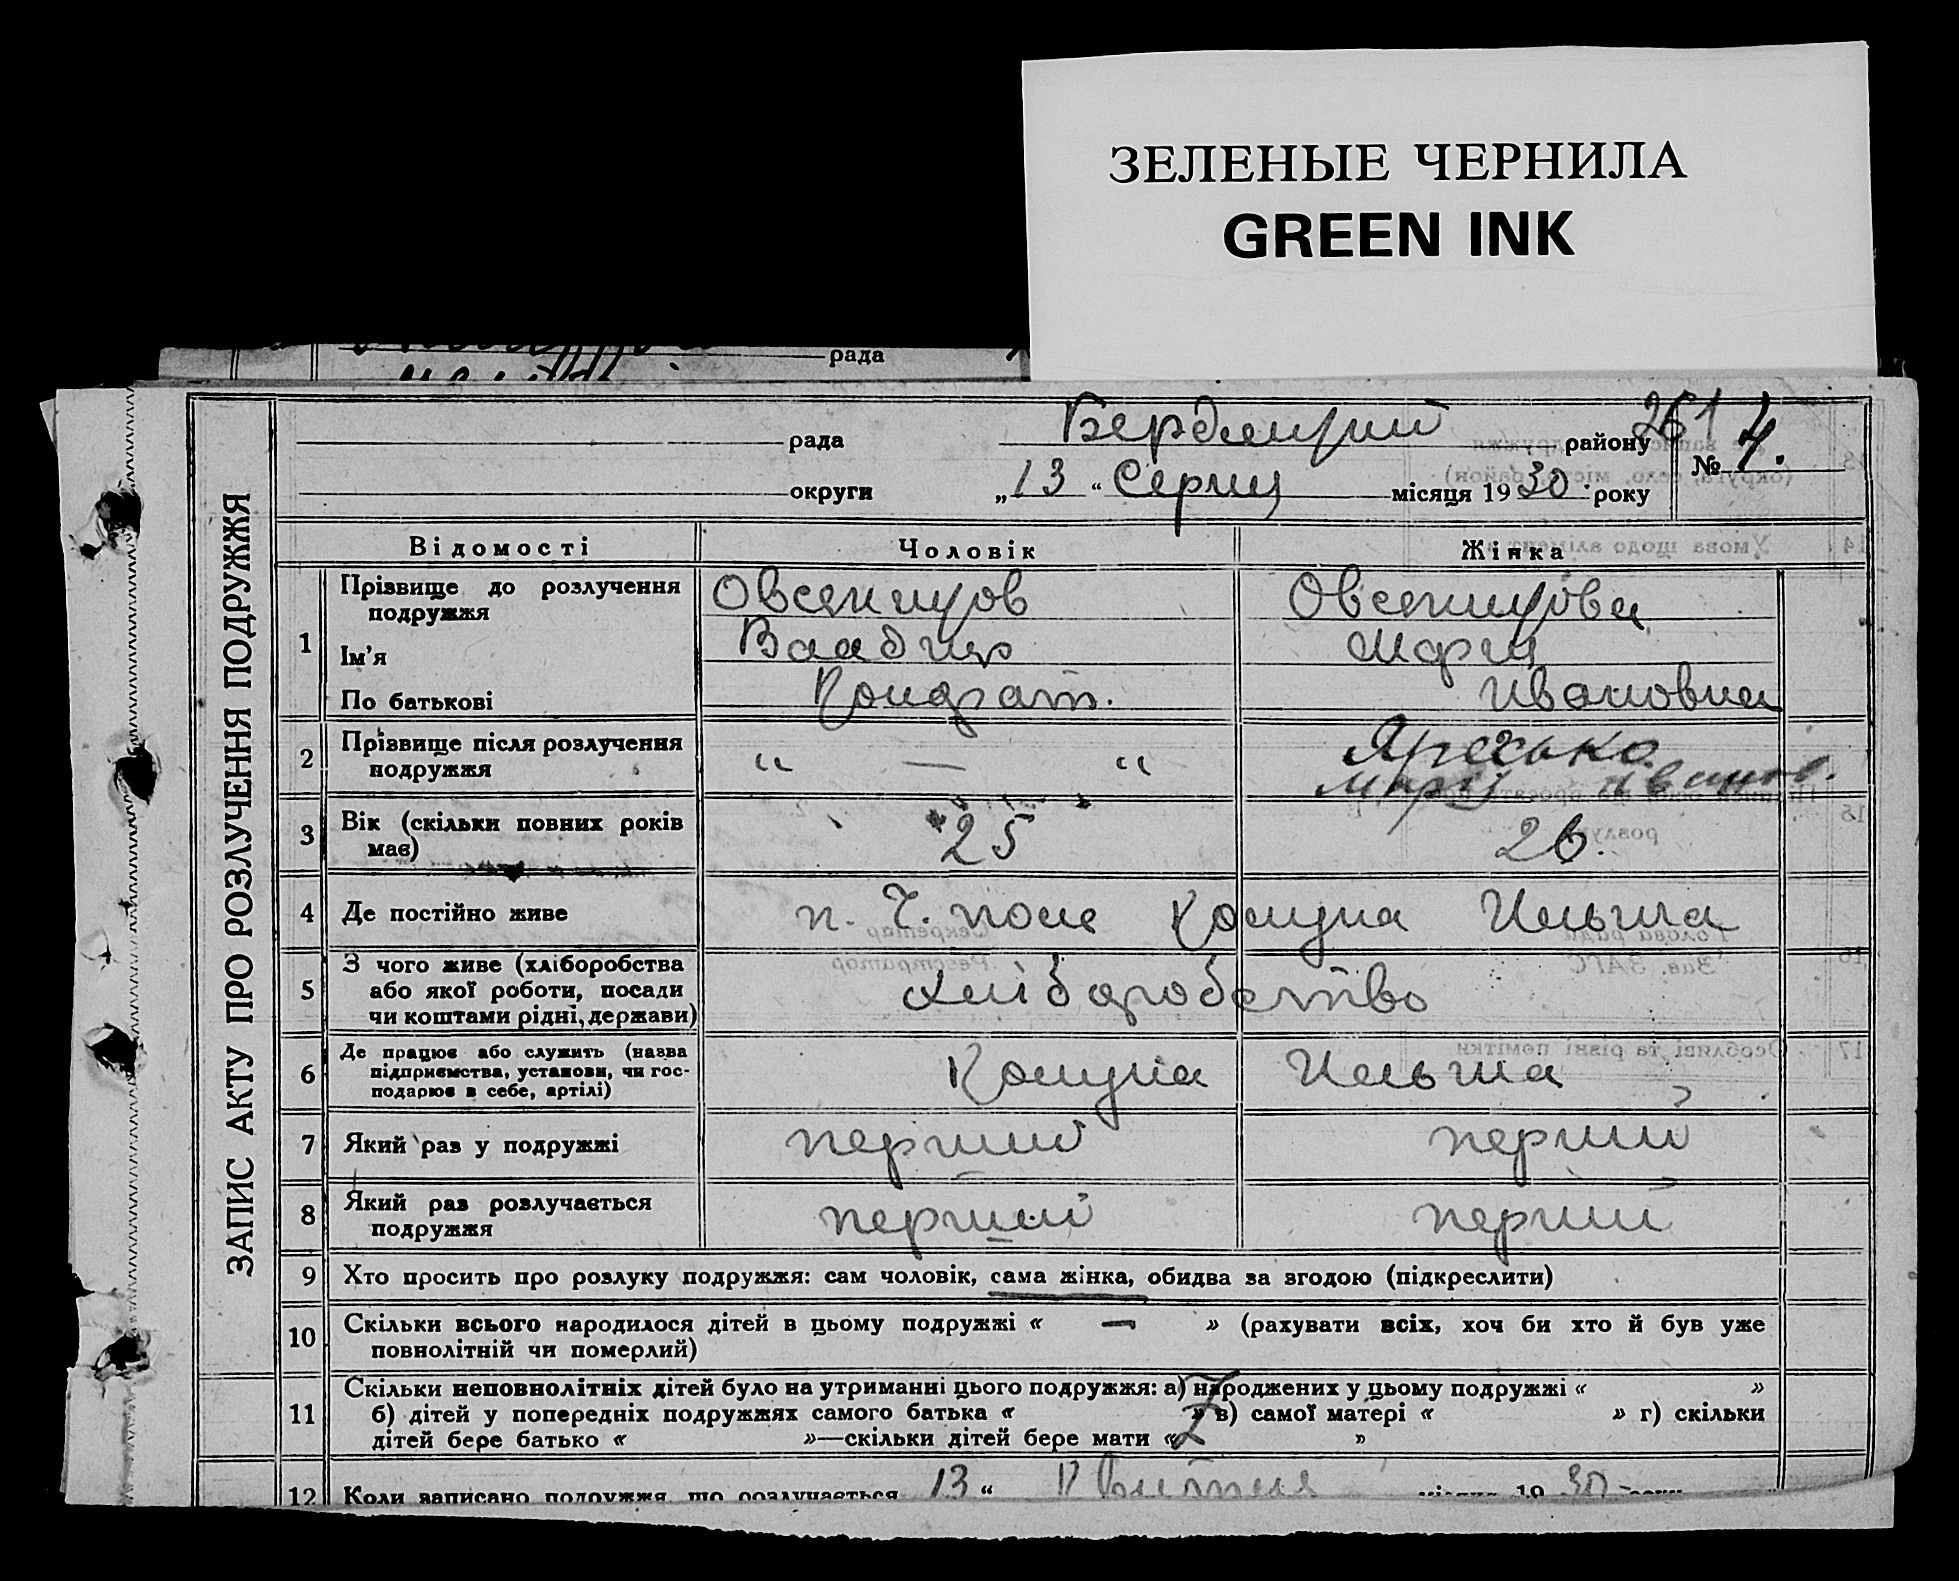 ЗЕЛЕНЫЕ ЧЕРНИЛА
GREEN INK
рада
ЗАПИС АКТУ ПРО РОЗЛУЧЕННЯ ПОДРУЖЖЯ
рада району 261
№ 4.
округи „13“ Серпня місяця 1930 року
Відомості Чоловік Жінка
1 Прізвище до розлучення Овсяницов Овсяницова
подружжя
Ім'я Марія
По батькові Кондрат. Ивановна
2 Прізвище після розлучення „ — “ Яресько
подружжя Марія Иванов.
3 Вік (скільки повних років 25 26.
має)
4 Де постійно живе п. Ч. поле Комуна Ильича
5 З чого живе (хліборобства
або якої роботи, посади Хліборобство
чи коштами рідні, держави)
6 Де працює або служить (назва Комуна Ильича
підприємства, установи, чи гос-
подарює в себе, артілі)
7 Який раз у подружжі перший перший
8 Який раз розлучається перший перший
подружжя
9 Хто просить про розлуку подружжя: сам чоловік, сама жінка, обидва за згодою (підкреслити)
10 Скільки всього народилося дітей в цьому подружжі « — » (рахувати всіх, хоч би хто й був уже
повнолітній чи померлий)
11 Скільки неповнолітніх дітей було на утриманні цього подружжя: а) народжених у цьому подружжі « »
б) дітей у попередніх подружжях самого батька « » в) самої матері « » г) скільки
дітей бере батько « »—скільки дітей бере мати « »
12 Коли записано подружжя, що розлучається 13 “ Квітня місяця 1930 року